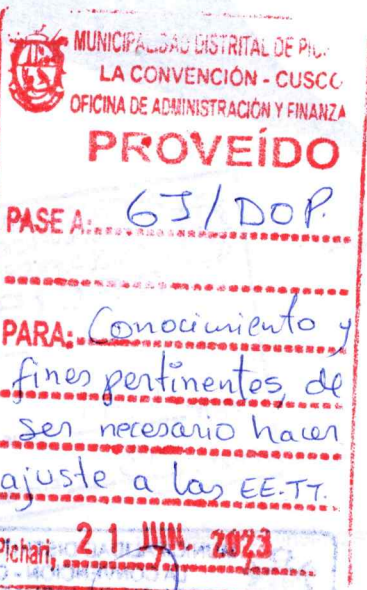 MUNICIPALIDAD DISTRITAL DE PIC
LA CONVENCIÓN - CUSCO
OFICINA DE ADMINISTRACIÓN Y FINANZA
PROVEÍDO
PASE A: GI/DOP.
PARA: Conocimiento y
fines pertinentes, de
ser necesario hacer
ajuste a las EE.TT.
Pichari, 21 JUN. 2023